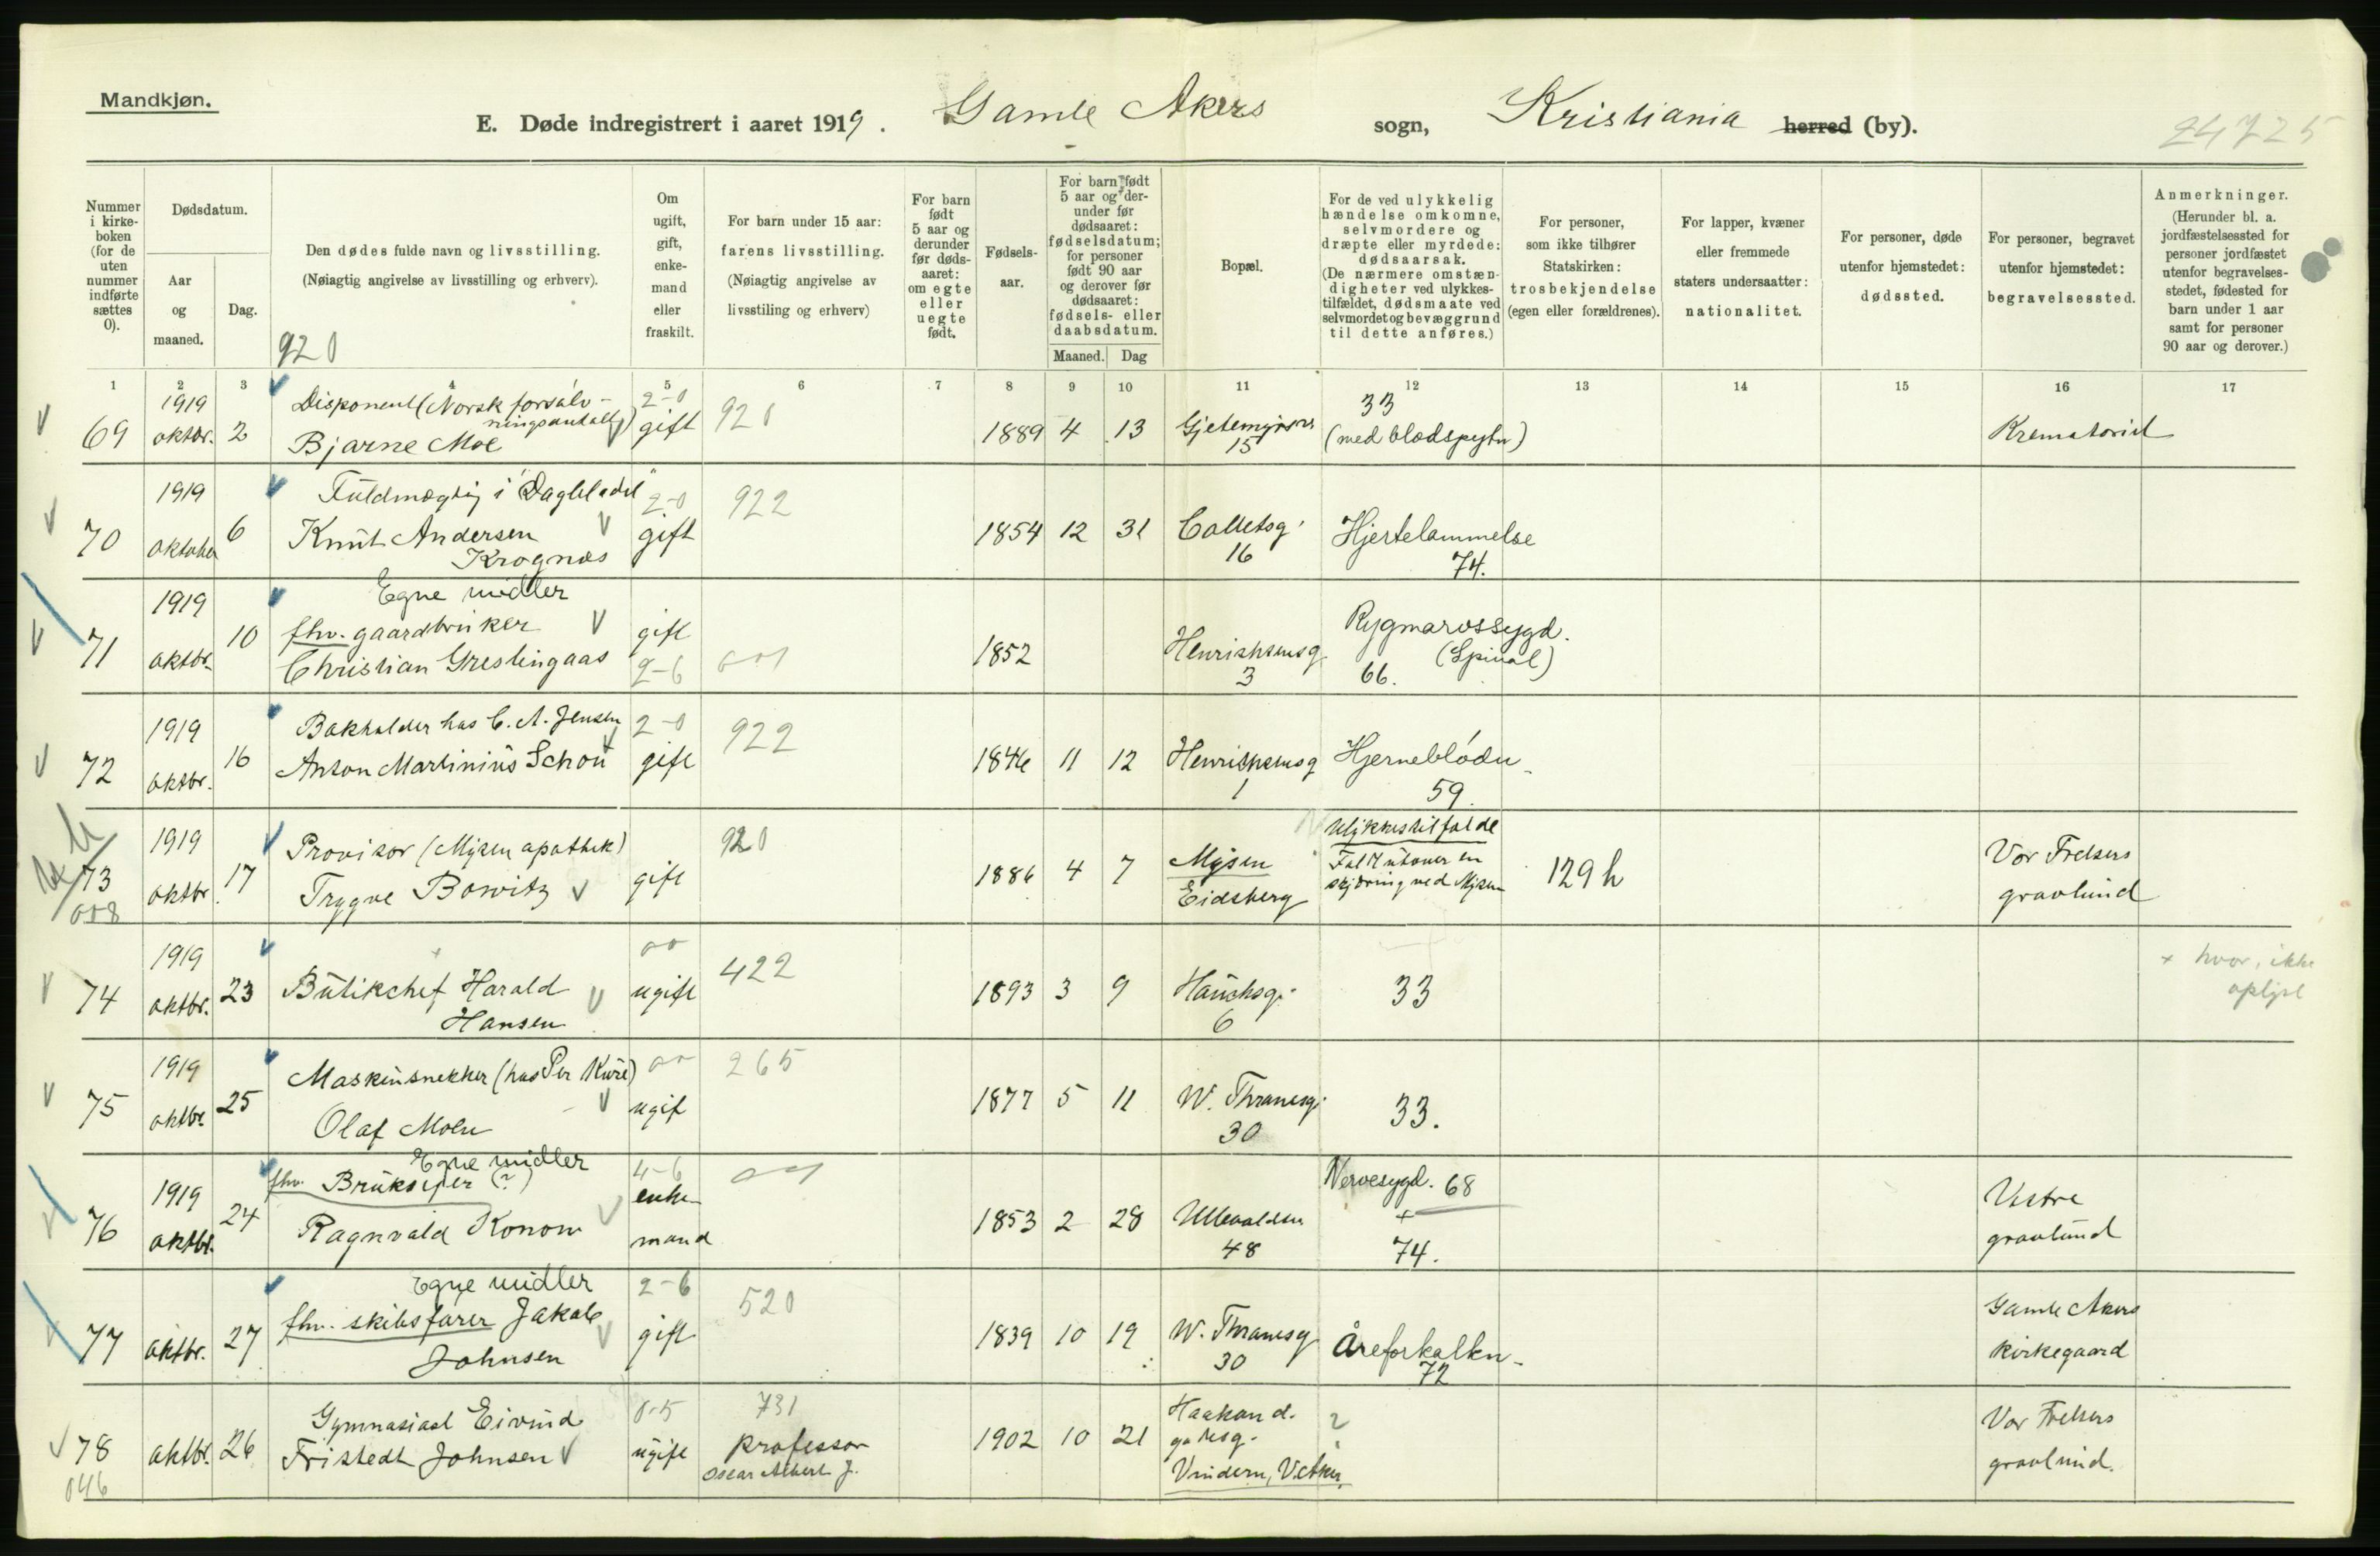 Mandkjøn.
E. Døde indregistrert i aaret 1919. Gamle Akers sogn, Kristiania herred (by).
24725
Nummer i kirke-boken (for de uten nummer indførte sættes 0).
Dødsdatum.
Aar og maaned.
Dag.
Den dødes fulde navn og livsstilling.
(Nøiagtig angivelse av livsstilling og erhverv).
920
Om ugift, gift, enke-mand eller fraskilt.
For barn under 15 aar:
farens livsstilling.
(Nøiagtig angivelse av livsstiling og erhverv)
For barn født 5 aar og derunder før døds-aaret: om egte eller uegte født.
Fødsels-aar.
For barn født 5 aar og der-under før dødsaaret: fødselsdatum; for personer født 90 aar og derover før dødsaaret: fødsels- eller daabsdatum.
Maaned. Dag
Bopæl.
For de ved ulykkelig hændelse omkomne, selvmordere og dræpte eller myrdede: dødsaarsak.
(De nærmere omstæn-digheter ved ulykkes-tilfældet, dødsmaate ved selvmordet og bevæggrund til dette anføres.)
For personer, som ikke tilhører Statskirken: trosbekjendelse (egen eller forældrenes).
For lapper, kvæner eller fremmede staters undersaatter: nationalitet.
For personer, døde utenfor hjemstedet: dødssted.
For personer, begravet utenfor hjemstedet: begravelsessted.
Anmerkninger.
(Herunder bl. a. jordfæstelsessted for personer jordfæstet utenfor begravelses-stedet, fødested for barn under 1 aar samt for personer 90 aar og derover.)
1 2 3 4 5 6 7 8 9 10 11 12 13 14 15 16 17
1919 Disponent (Norsk forsølv- 2-0 33
ningsanstalt)
69 oktbr. 2 Bjarne Moe gift 920 1889 4 13 15 Krematoriet
1919 Fuldmægtig i "Dagbladet" 2-0 922
70 oktober 6 Knut Andersen gift 1854 12 31 Colletsg. Hjertelammelse
Krognæs 16 74.
1919 Egne midler
71 oktbr. 10 fhv. gaardbruker gift 1852 Rygmarvssygd.
Christian Grestingaas 2-6 3 66. (Spinal)
1919 Bokholder hos C. A. Jensen 2-0 922
72 oktbr. 16 Anton Martinius Schou gift 1846 11 12 Hjerneblødn.
1 59.
1919 Provisor (Mysen apothek) 920 Ulykkestilfælde
73 oktbr. 17 Trygve Bowitz gift 1886 4 7 Mysen Fald utover en 129 h Vor Frelsers
Eidsberg skjæring ved Mysen gravlund
1919 422 + hvor, ikke
74 oktbr. 23 Butikchef Harald ugift 1893 3 9 Hauchsg. 33 oplyst
Hansen 6
1919 Maskinsnekker (hos Per Kure) 265
75 oktbr. 25 Olaf Moen ugift 1877 5 11 W. Thranesg. 33.
30
1919 Egne midler 4-6 Nervesygd. 68
76 oktbr. 24 fhv. Brukseier (?) enke- 1853 2 28 Ullevaldsv. + Vestre
Ragnvald Konow mand 48 74. gravlund
Egne midler 2-6 520
77 oktbr. 27 fhv. skibsfører Jakob gift 1839 10 19 W. Thranesg. Åreforkalkn. Gamle Akers
Johnsen 30 72 kirkegaard
Gymnasiast Eivind 0-5 731 Haakon d. ?
78 oktbr. 26 Fristedt Johnsen ugift professor 1902 10 21 godesg. Vor Frelsers
046 Oscar Albert J. Vindern, V. Aker. gravlund.